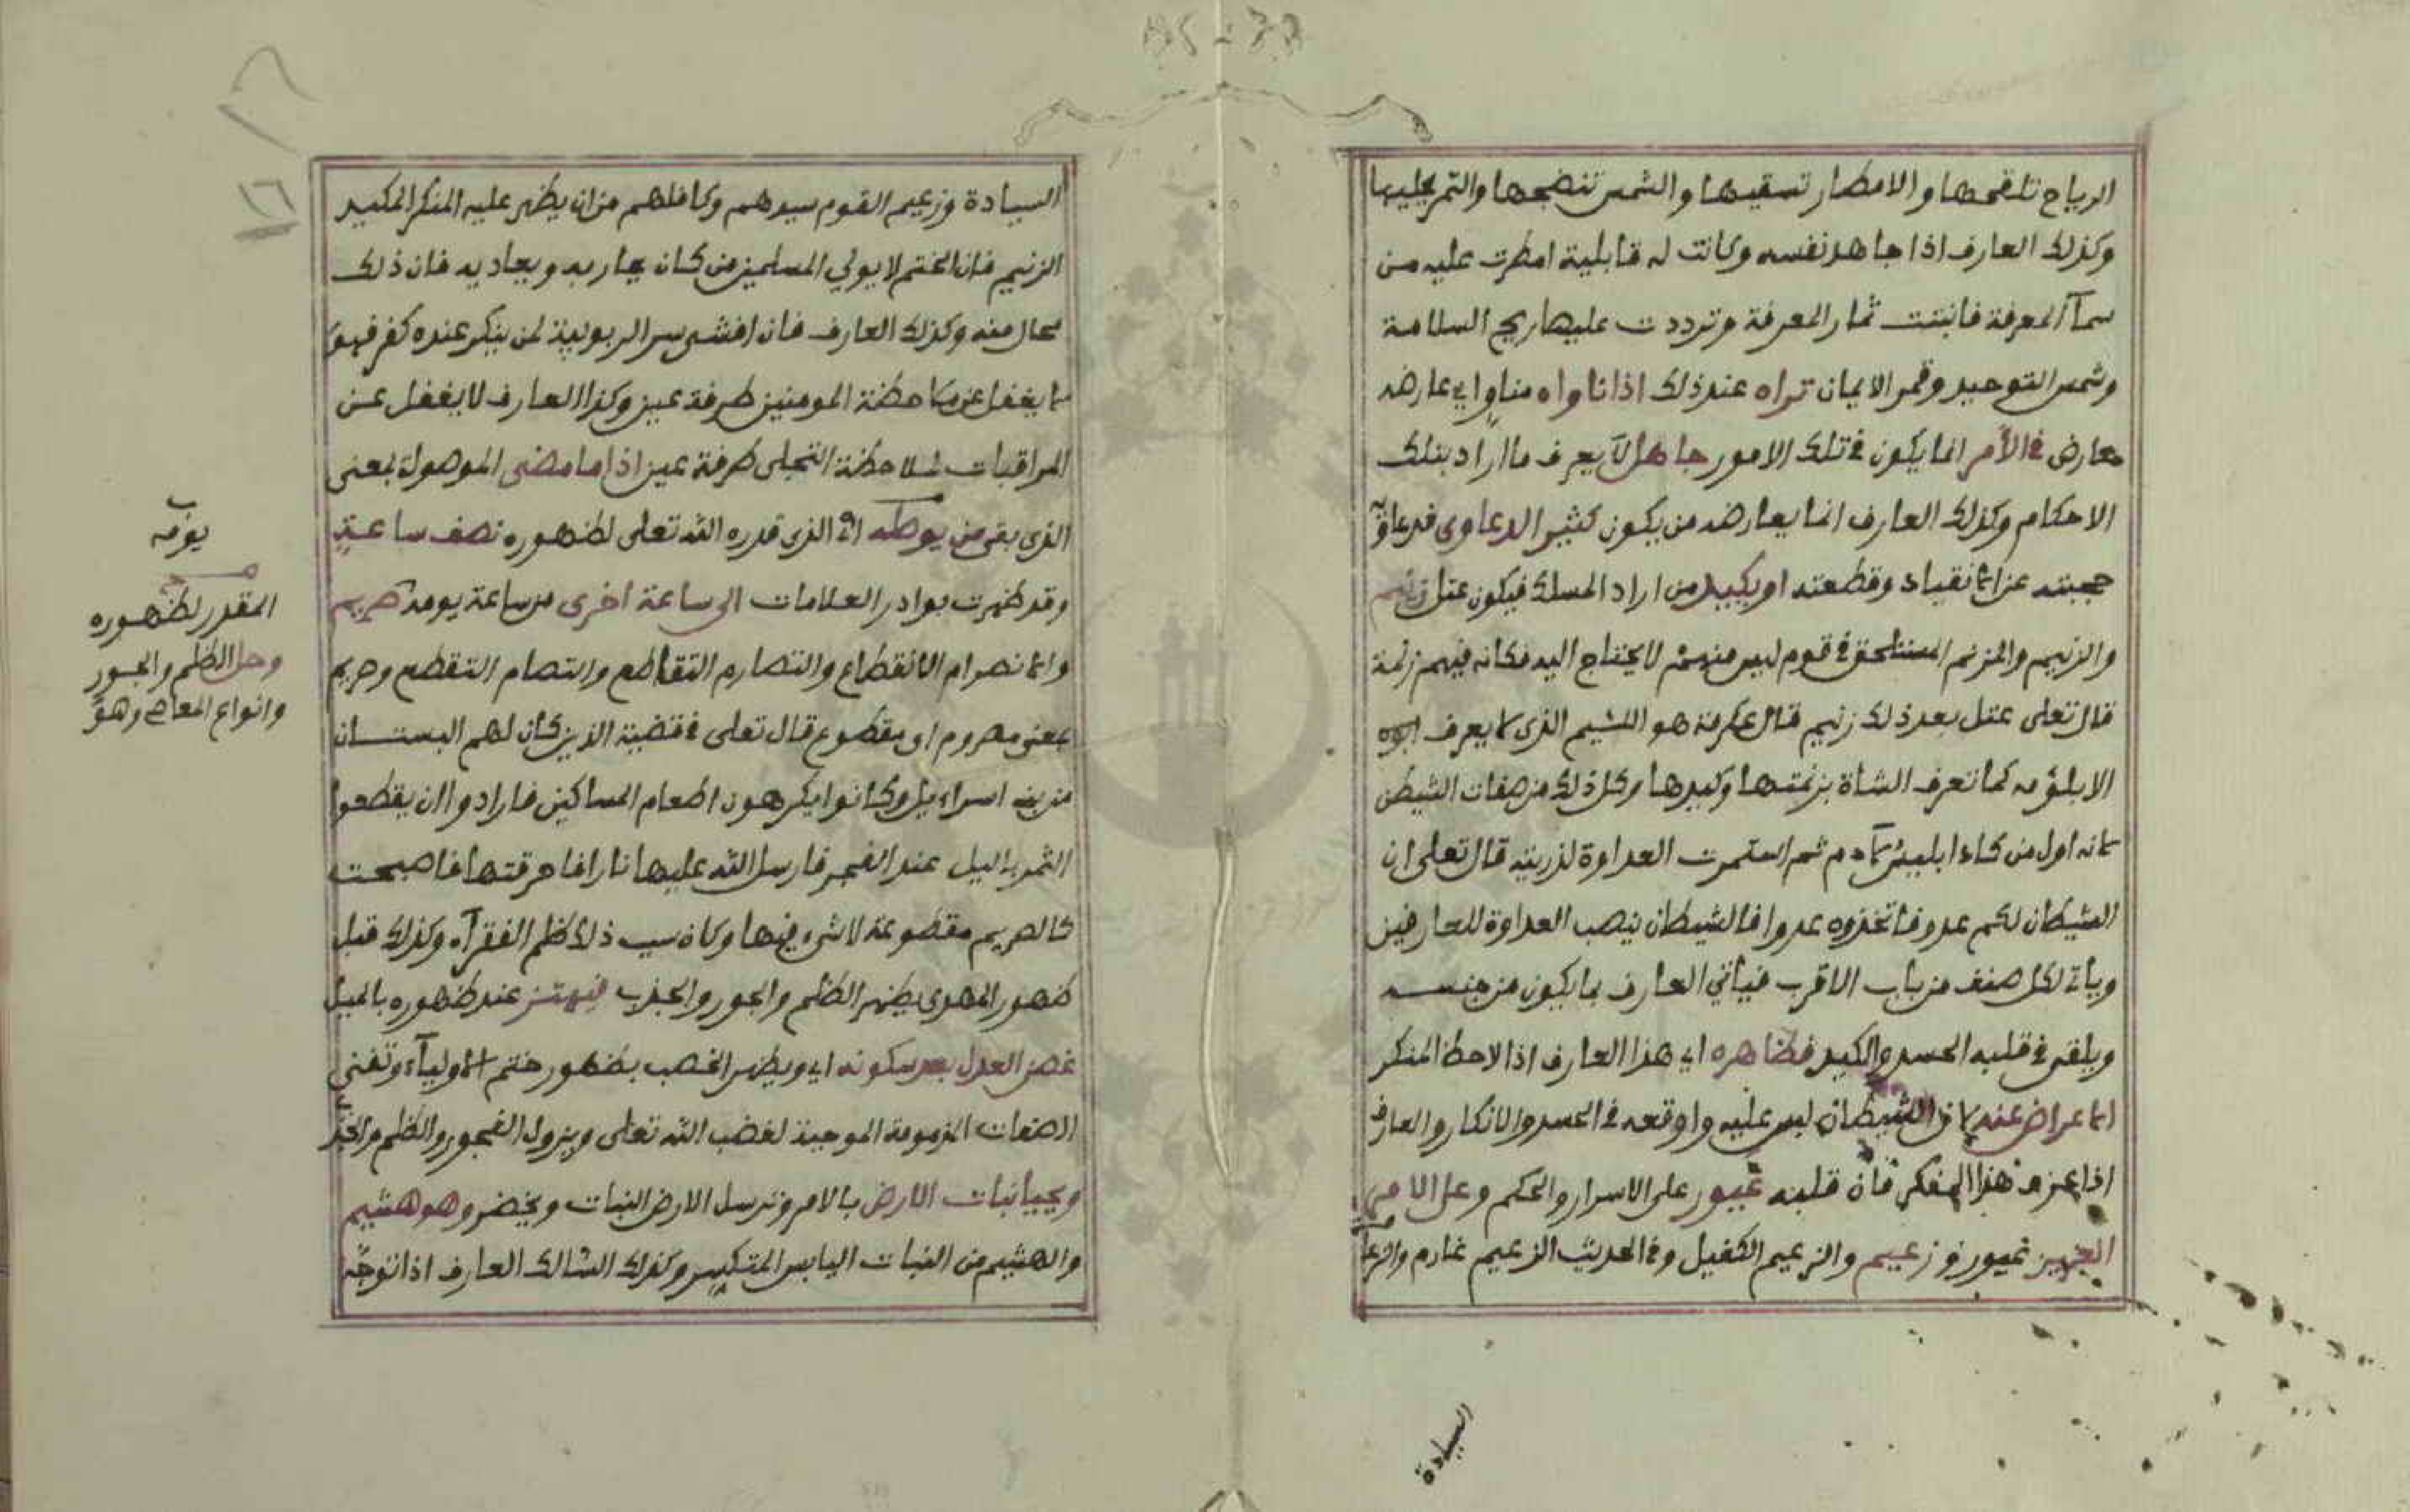 الرياح تلقحها والامطار تسقيها والشمس تنضجها والقمر يحليها
وكذلك العارف اذا جاهد نفسه وكانت له قابلية امطرت عليه من
سمآ المعرفة فانبتت ثمار المعرفة وترددت عليها ريح السلامة
وشمس التوحيد وقمر الايمان تراه عند ذلك اذا ناواه مناو اي عارضه
معارض في الأمر انما يكون في تلك الامور جاهل لا يعرف ما اراد بتلك
الاحكام وكذلك العارف انما يعارضه من يكون كثير الدعاوى فدعاوٓ
حجبته عن الانقياد وقطعته او يكيد من اراد المسلك فيكون عتل زنيم
والزنيم والمزنم المستلحق في قوم ليس منهم لا يحتاج اليه فكانه فيهم زنمة
قال تعلى عتل بعد ذلك زنيم قال عكرمة هو اللئيم الذى لا يعرف ابوه
الا بلؤمه كما تعرف الشاة بزنمتها وكيدها وكل ذلك من صفات الشيطن
لانه اول من كاد ابليس لآدم ثم استمرت العداوة لذريته قال تعلى ان
الشيطان لكم عدو فاتخذوه عدوا فالشيطان ينصب العداوة للعارفين
ويأتي لكل صنف من باب الاقرب فيأتي العارف بما يكون من جنسه
ويلقى في قلبه الحسد والكيد فظاهره اي هذا العارف اذا لاحظ المنكر
الاعراض عنه لان الشيطان لبس عليه واوقعه في الحسد والانكار والعارف
اذا عرف هذا المنكر فان قلبه غيور على الاسرار والحكم وعلى الامر
العزيز غيور و زعيم والزعيم الكفيل وفي الحديث الزعيم غارم والزعآمة
السيادة
السيادة وزعيم القوم سيدهم وكافلهم من ان يظهر عليه المنكر المكيد
الزنيم فان الختم لا يولي المسلمين من كان يحاربه ويعاديه فان ذلك
محال منه وكذلك العارف فان افشى سر الربوبية لمن ينكر عنده كفر فهو
لا يغفل عن ملاحظة المومنين طرفة عين وكذا العارف لا يغفل عن
المراقبات لملاحظة التجلى طرفة عين اذا ما مضى الموصولة بمعنى
الذى بقى من يومه اي الذى قدره الله تعلى لظهوره نصف ساعة
وقد ظهرت بوادر العلامات الى ساعة اخرى من ساعة يومه صريم
والانصرام الانقطاع والتصارم التقاطع والتصام التقطع وصريم
بمعنى مصروم اى مقطوع قال تعلى في قضية الذين كان لهم البستان
من بني اسراءيل وكانوا يكرهون اطعام المساكين فارادوا ان يقطعوا
الثمر باليل عند الفجر فارسل الله عليها نارا فاحرقتها فاصبحت
كالصريم مقطوعة لا شيء فيها وكان سبب ذلك ظلم الفقرآء وكذلك قبل
ظهور المهدى يظهر الظلم والجور والجذب فيهتز عند ظهوره بالميل
غصن العدل بعد سكونه اي ويظهر الخصب بظهور ختم الاوليآء وتفنى
الصفات المذمومة الموجبة لغضب الله تعلى ويزول الفجور والظلم
ويحيى نبات الارض بالامر وترسل الارض النبات ويخضر وهو هشيم
والهشيم من النبات اليابس المتكسر وكذلك السالك العارف اذا توجه
١٦
يومه
المقدر لظهوره
وحل الظلم والجور
وانواع المعاصي وهو